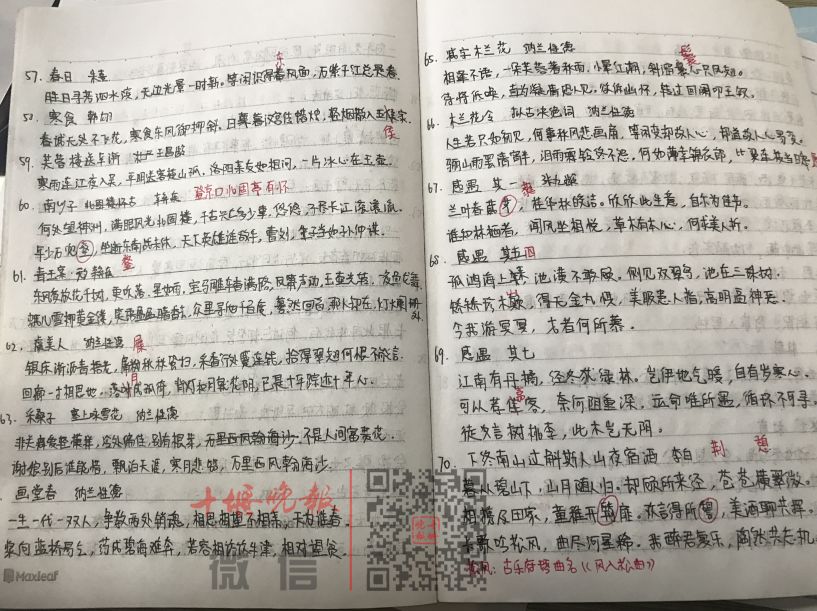 57. 春日 朱熹
东
胜日寻芳泗水滨,无边光景一时新。等闲识得春风面,万紫千红总是春
58. 寒食 韩翃
春城无处不飞花,寒食东风御柳斜。日暮汉宫传蜡烛,轻烟散入五侯家.
侯
59. 芙蓉楼送辛渐 王昌龄
寒雨连江夜入吴,平明送客楚山孤。洛阳亲友如相问,一片冰心在玉壶.
60. 南乡子 登京口北固亭有怀
何处望神州,满眼风光北固楼,千古兴亡多少事,悠悠,不尽长江滚滚流.
年少万兜鍪,坐断东南战未休,天下英雄谁敌手,曹刘,生子当如孙仲谋.
鍪
61. 青玉案·元夕
东风夜放花千树,更吹落,星如雨,宝马雕车香满路,凤箫声动,玉壶光转,
蛾儿雪柳黄金缕,笑语盈盈暗香去,众里寻他千百度,蓦然回首,那人却在,灯火阑珊处.
62. 虞美人 纳兰性德
屧
银床淅沥青梧老,屧粉秋蛩扫,采香行处蹙连钱,拾得翠翘何恨不能言.
回廊一寸相思地,落月成孤倚,背灯和月就花阴,已是十年踪迹十年心.
63. 采桑子 塞上咏雪花 纳兰性德
非关癖爱轻模样,冷处偏佳,别有根芽,不是人间富贵花.
谢娘别后谁能惜,飘泊天涯,寒月悲笳,万里西风瀚海沙.
画堂春 纳兰性德
一生一代一双人,争教两处销魂,相思相望不相亲,天为谁春.
浆向蓝桥易乞,药成碧海难奔,若容相访饮牛津,相对忘贫.
Maxleaf
65. 减字木兰花 纳兰性德
鬟
相逢不语,一朵芙蓉著秋雨,小晕红潮,斜溜鬟心只凤翘.
待将低唤,直为凝情恐人见,欲诉幽怀,转过回阑叩玉钗.
66. 木兰花令 拟古决绝词 纳兰性德
人生若只如初见,何事秋风悲画扇,等闲变却故人心,却道故人心易变.
骊山雨罢清宵半,泪雨霖铃终不怨,何如薄幸锦衣郎,比翼连枝当日愿
67. 感遇 其一 张九龄
兰叶春葳蕤,桂华秋皎洁.欣欣此生意,自尔为佳节.
谁知林栖者,闻风坐相悦,草木有本心,何求美人折.
68. 感遇 其四
孤鸿海上来,池潢不敢顾,侧见双翠鸟,巢在三珠树.
矫矫珍木巅,得无金丸惧,美服患人指,高明逼神恶.
今我游冥冥,弋者何所慕.
69. 感遇 其七
江南有丹橘,经冬犹绿林.岂伊地气暖,自有岁寒心.
可以荐嘉客,奈何阻重深,运命唯所遇,循环不可寻.
徒言树桃李,此木岂无阴.
70. 下终南山过斛斯山人宿置酒 李白 荆 憩
暮从碧山下,山月随人归.却顾所来径,苍苍横翠微.
相携及田家,童稚开荆扉.欢言得所憩,美酒聊共挥.
长歌吟松风,曲尽河星稀.我醉君复乐,陶然共忘机
松风:古乐府琴曲名《风入松曲》
十堰晚报
微信